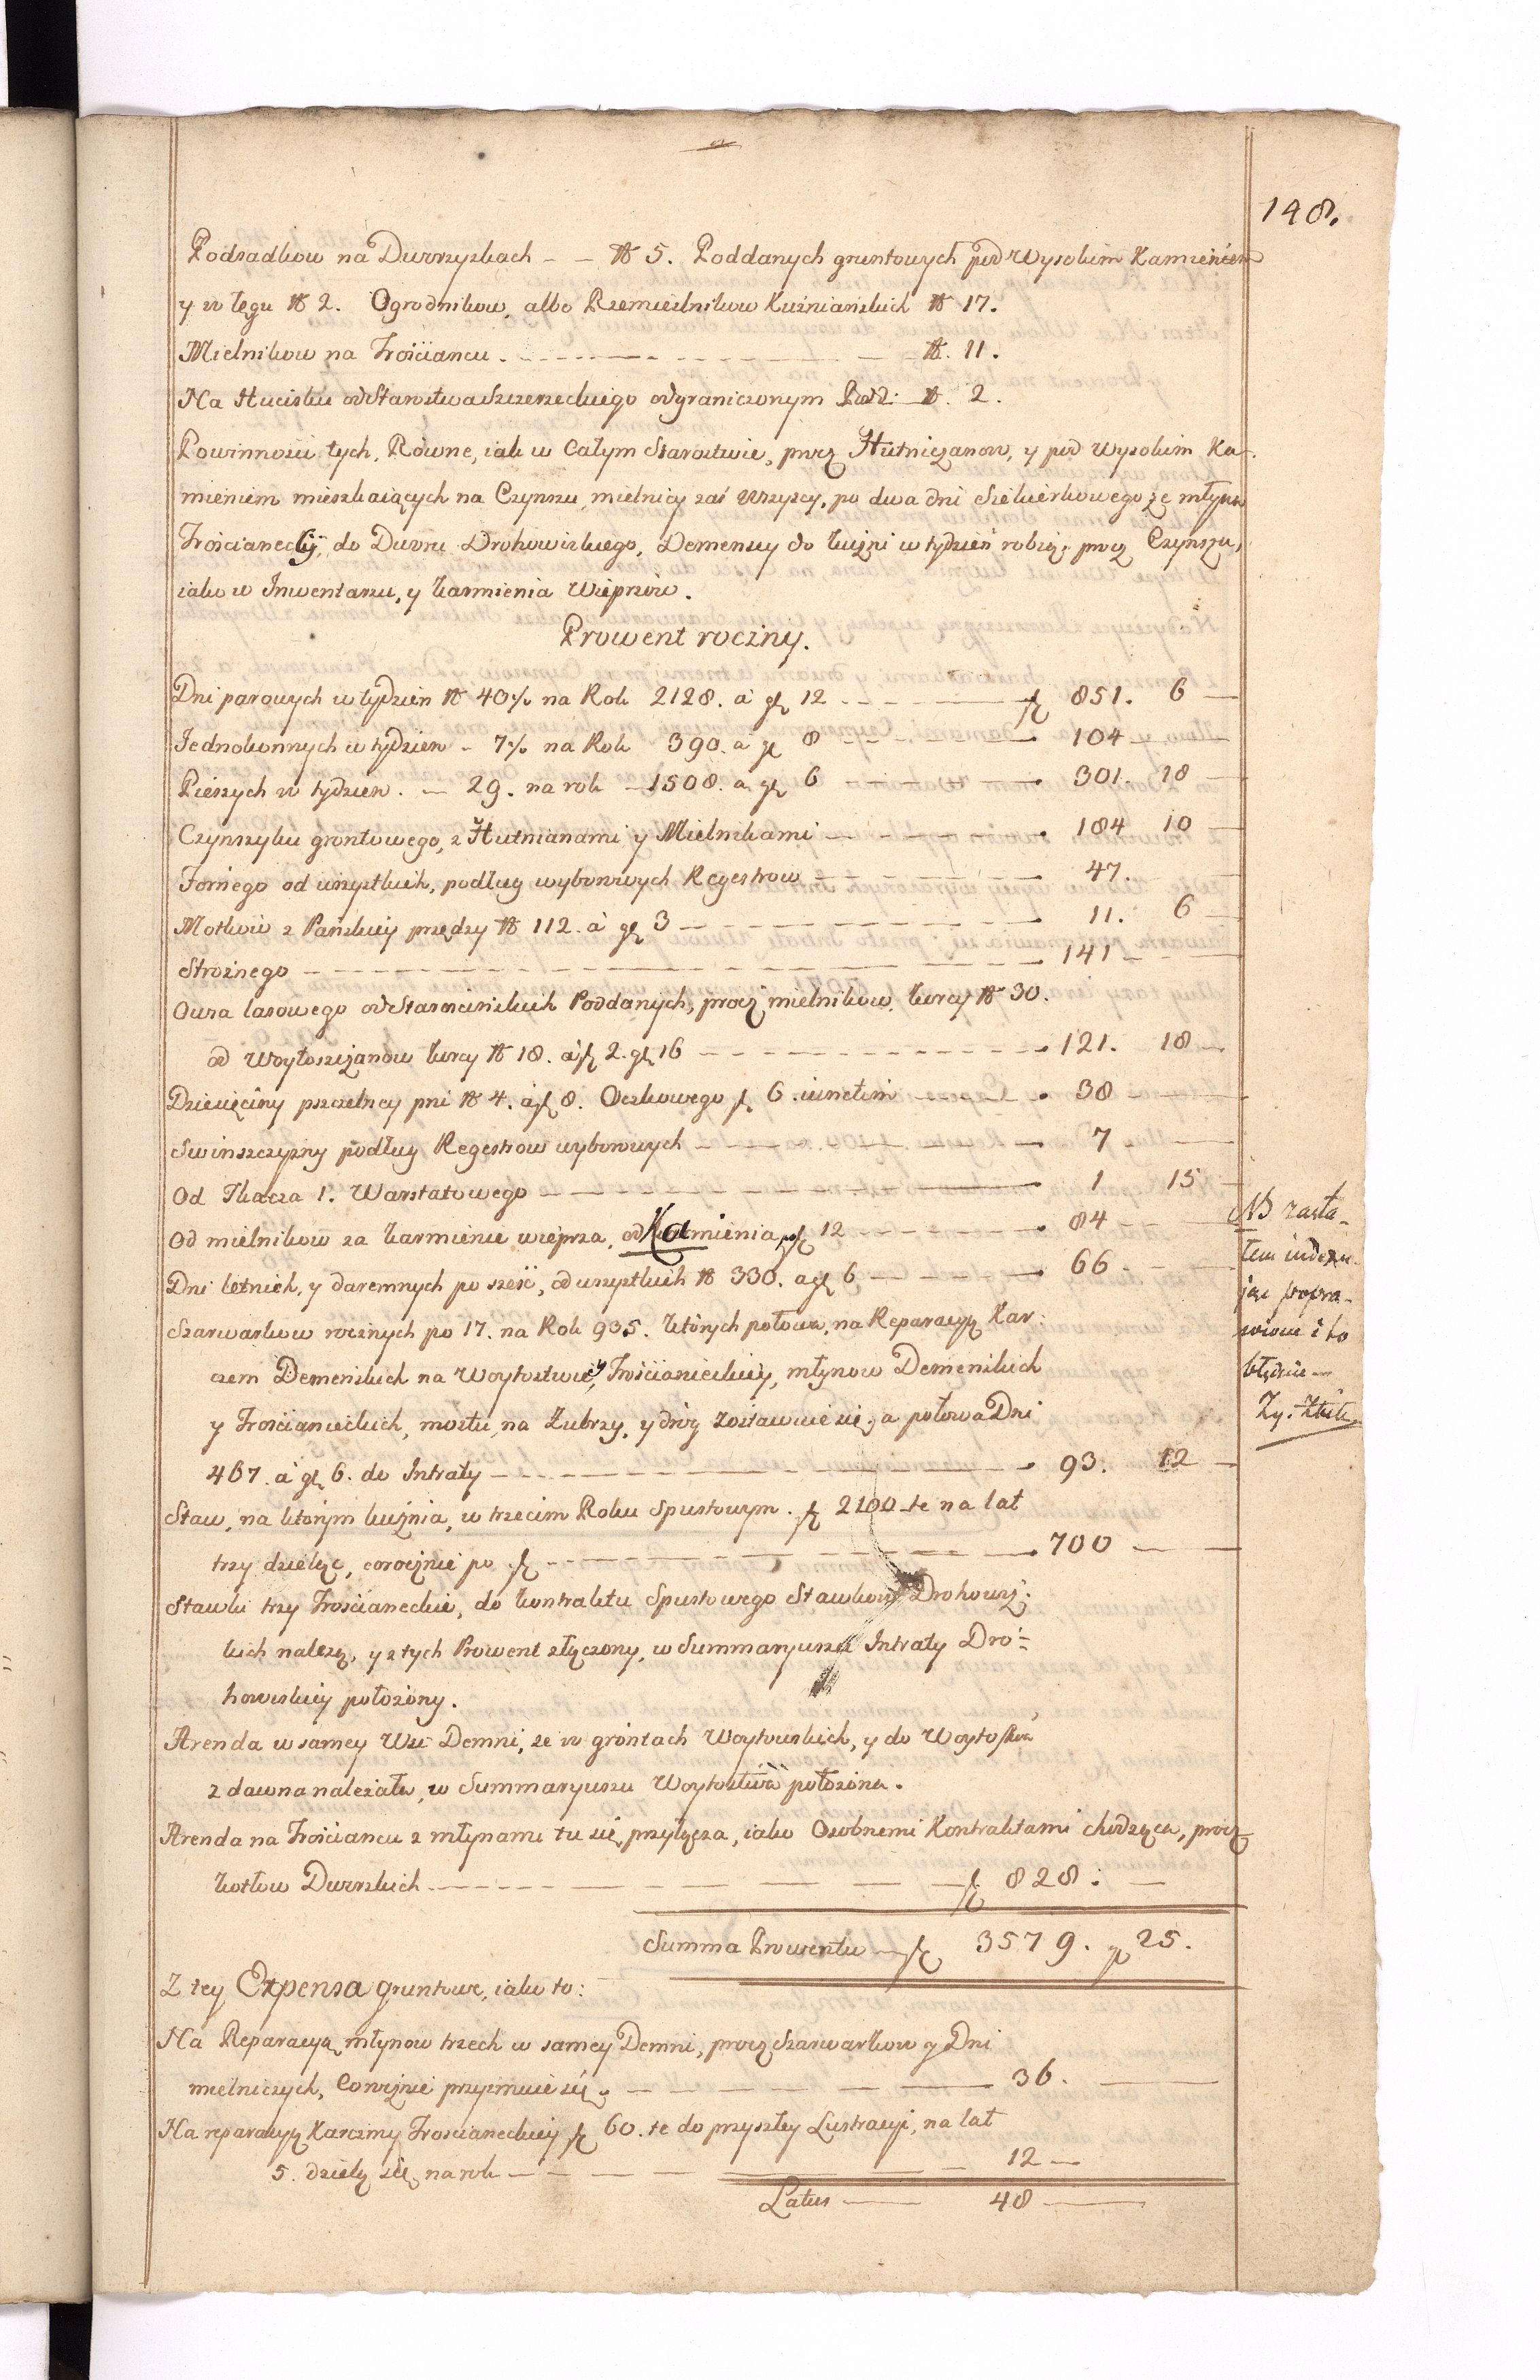 148.
Podsadkow na Dworzyskach - - № 5. Poddanych gruntowych pod Wysokim Kamieniem
y w łęgu № 2. Ogrodnikow, albo Rzemieslnikow Kuźniańskich № 17.
Mielnikow na Trościancu - - - № 11.
Na Hucisku od Starostwa Szczerzeckiego odgraniczonym Podd: № 2.
Powinności tych, Rowne, iak w Całym Starostwie, procz Hutniczanow, y pod Wysokim Ka-
mieniem mieszkaiących na Czynszu, mielnicy zaś wszyscy, po dwa dni Siekierkowego ze młyna
Trościanecky, do Dworu Drohowizkiego, Demenscy do kuźni w tydzień robią, procz Czynszu,
iako w Inwentarzu, y karmienia Wieprzow.
Prowent roczny.
Dni parowych w tydzien № 40 na Rok 2128. a gł 12 - - - fł 851. 6
Jednokonnych w tydzien - 7 na Rok 390. a gł 8 - - - 104
Pieszych w tydzien - 29. na rok - 1508. a gł 6 - - - 301. 18
Czynszyku gruntowego, z Hutnianami y Mielnikami - - - 184 10
Fornego od wszystkich, podług wyborowych Regestrow - - - 47.
Motkow z Pańskiey przędzy № 112. à gł 3 - - - 11. 6
Stroznego - - - 141
Owsa lasowego od Starościńskich Poddanych, procz mielnikow, kurcy № 30.
od Woytoszczanow kurcy № 18. à fł 2. gł 16 - - - 121. 18
Dziesięciny pszczelney pni № 4. à fł 8. Oczkowego fł 6. iunctim - - - 38
Swinszczyzny podług Regestrow wyborowych - - - 7
Od Tkacza 1. Warstatowego - - - 1 15
Od mielnikow za karmienie wieprza, od Kamienia po fł 12 - - - 84
Dni letnich, y daremnych po sześć, od wszystkich № 330. a gł 6 - - - 66
Szarwarkow rocznych po 17. na Rok 935. których połowa, na Reparacyą Kar:
czem Demenskich na Woytostwie y Trościanieckiey, młynow Demenskich
y Trościanieckich, mostu, na Zubrzy, y dróg zostawuie się, a połowa Dni
467. à gł 6. do Intraty - - - 93. 12
Staw, na którym kuźnia, w trzecim Roku Spustowym. fł 2100 te na lat
trzy dzieląc, corocznie po fł - - - 700
Stawki trzy Trościaneckie, do kontraktu Spustowego Stawkow Drohowyż:
kich należą, y z tych Prowent złączony, w Summaryuszu Intraty Dro=
howiskiey położony.
Arenda w samey Wsi Demni, ze w gróntach Woytowskich, y do Woytostwa
z dawna należała, w Summaryuszu Woytostwa położona.
Arenda na Trościancu z młynami tu się przyłącza, iako Osobnemi Kontraktami chodząca, procz
kotłow Dworskich - - - fł 828.
Summa Prowentu - fł 3579. gł 25.
Z tey Expensa gruntowe, iako to:
Na Reparacyą młynow trzech w samey Demni, procz Szarwarkow y Dni
mielniczych, Corocznie przyimuie się - - - 36.
Na reparacyą Karczmy Trościaneckiey fł 60. te do przyszłey Lustracyi, na lat
5. dzielą się, na rok - - - 12
Latus - 48
NB zasta-
łem indexu-
jąc popra-
wione i to
błędnie -